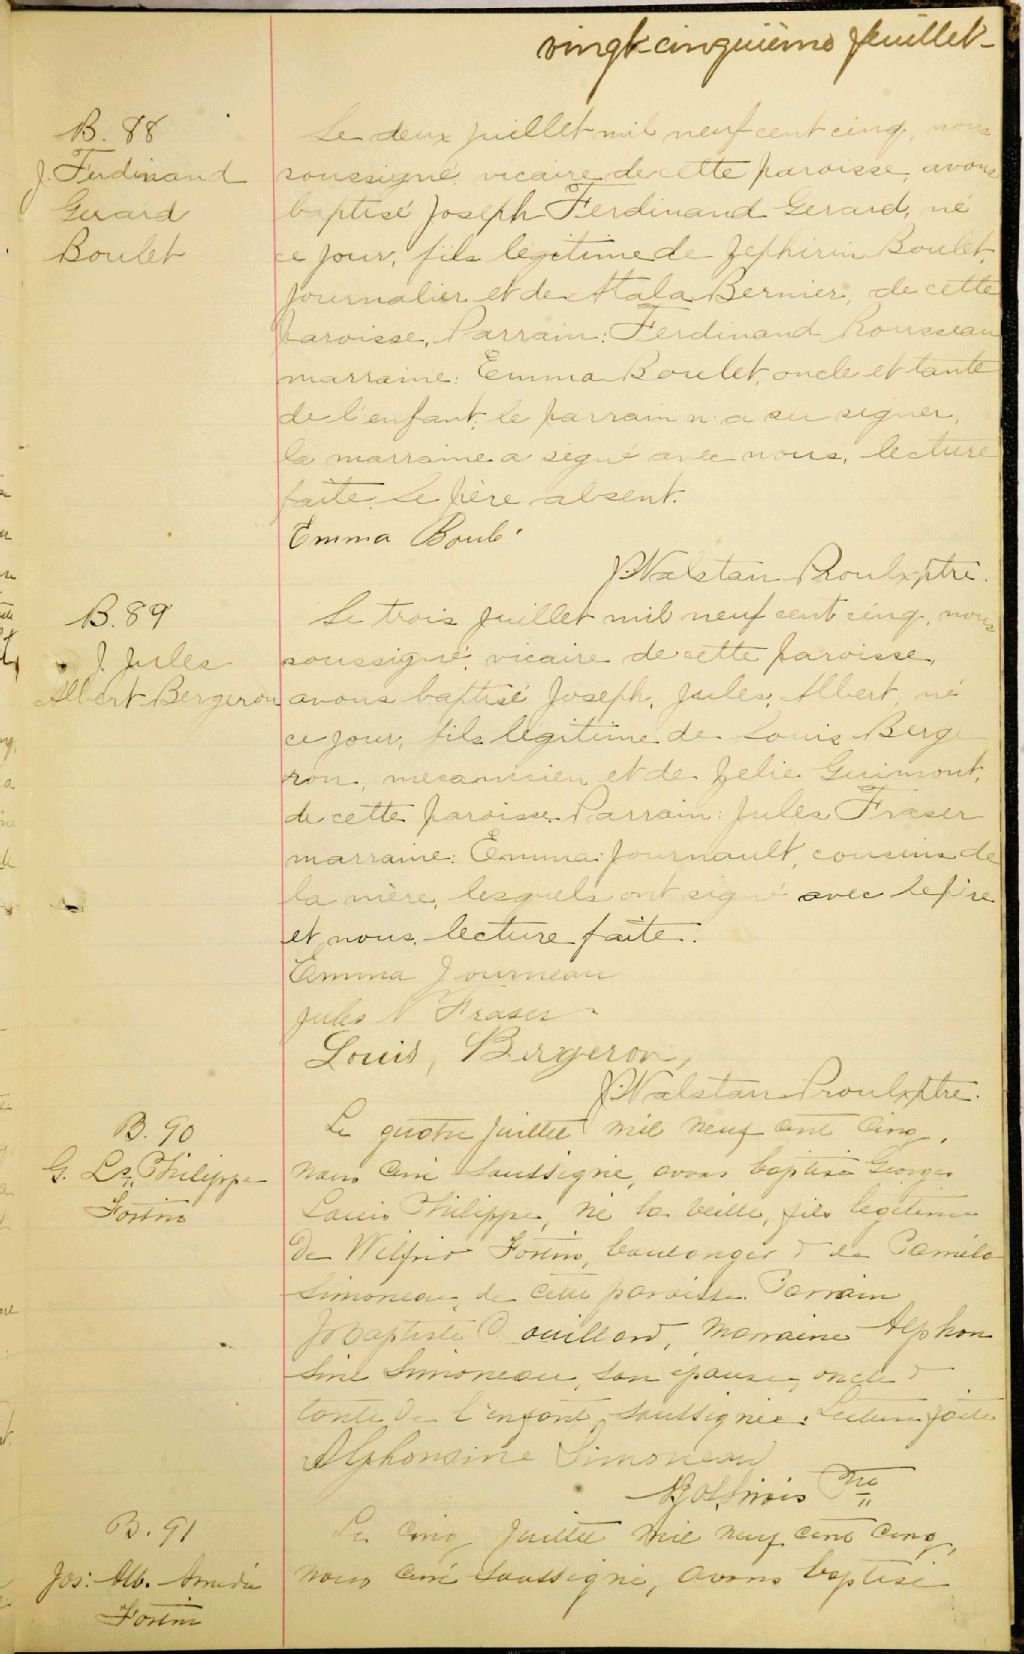 vingt-cinquième feuillet-
B. 88
J. Ferdinand
Gerard
Boulet
Le deux juillet mil neuf cent cinq, nous
soussigné, vicaire de cette paroisse, avons
baptisé Joseph Ferdinand Gerard, né
ce jour, fils légitime de Zephirin Boulet,
journalier et de Atala Bernier, de cette
paroisse, Parrain: Ferdinand Rousseau
marraine: Emma Boulet, oncle et tante
de l'enfant, le parrain n'a su signer,
la marraine a signé avec nous, lecture
faite. Le père absent.
Emma Boulé
J. Walstan Proulx ptre.
B. 89
J. Jules
Albert Bergeron
Le trois juillet mil neuf cent cinq, nous
soussigné, vicaire de cette paroisse,
avons baptisé Joseph, Jules, Albert, né
ce jour, fils légitime de Louis Berge
ron, mecanicien et de Zelie Guimont,
de cette paroisse. Parrain: Jules Fraser
marraine: Emma Journault, cousins de
la mère, lesquels ont signé avec le père
et nous, lecture faite.
Emma Journeau
Jules N Fraser
Louis, Bergeron,
J. Walstan Proulx ptre.
B. 90
G. Ls. Philippe
Fortin
Le quatre juillet mil neuf cent cinq,
nous curé soussigné, avons baptisé Georges
Louis Philippe, né la veille, fils legitime
de Wilfrid Fortin, boulanger & de Paméla
Simoneau, de cette paroisse. Parrain
Jobaptiste Couillard, marraine Alphon
sine Simoneau, son épouse, oncle &
tante de l'enfant, soussignée. Lecture faite
Alphonsine Simoneau
Ptre
B. 91
Jos: Alb. Amédée
Fortin
Le cinq juillet mil neuf cent cinq,
nous curé soussigné, avons baptisé